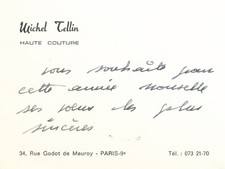 Michel Tellin
HAUTE COUTURE
vous souhaite pour
cette année nouvelle
ses voeux les plus
sincères.
34, Rue Godot de Mauroy - PARIS-9e
Tél. : 073 21-70